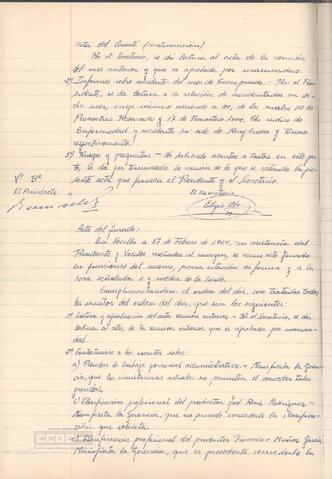 Acta del Comité (continuación)
Por el Secretario, se da lectura al acta de la reunión
del mes anterior y que es aprobada por unanimidad.
2º) Informes sobre accidentes del mes de Enero pasado - Por el Presi-
dente, se da lectura a la relación de accidentados en di-
cho mes, cuyo número asciende a 80, de los cuales
Pronóstico Reservado y 17 de Pronóstico Leve. Los índices de
Enfermedad y accidente han sido de Muy buena y Buena
respectivamente.
3º) Ruegos y preguntas - No habiendo asuntos a tratar en este pun-
to, se da por terminada la reunión de la que se extiende la pre-
sente acta que firman el Presidente y el Secretario.
Vº Bº
El Presidente
El Secretario
Acta del Jurado.-
En Sevilla a 27 de Febrero de 1964, con asistencia del
Presidente y Vocales reseñados al margen, se reune este Jurado
en funciones del mismo, previa citación en forma y a la
hora señalada y media de la tarde.
Cumplimentándose el orden del día, son tratados todos
los asuntos del orden del día, que son los siguientes:
1º Lectura y aprobación del acta reunión anterior. - Por el Secretario, se da
lectura al acta de la reunión anterior que es aprobada por unanimi-
dad.
2º Contestaciones a los escritos sobre:
a) Pruebas de trabajo personal administrativo. - Manifiesta la Geren-
cia, que las circunstancias actuales no permiten el conceder tales
b) Clasificación profesional del productor José Ruiz Rodríguez -
Manifiesta la Gerencia, que no procede concederle la clasifica-
ción, que solicita.
c) Clasificación profesional del productor Francisco Muñoz García
Manifiesta la Gerencia, que es procedente concederle la